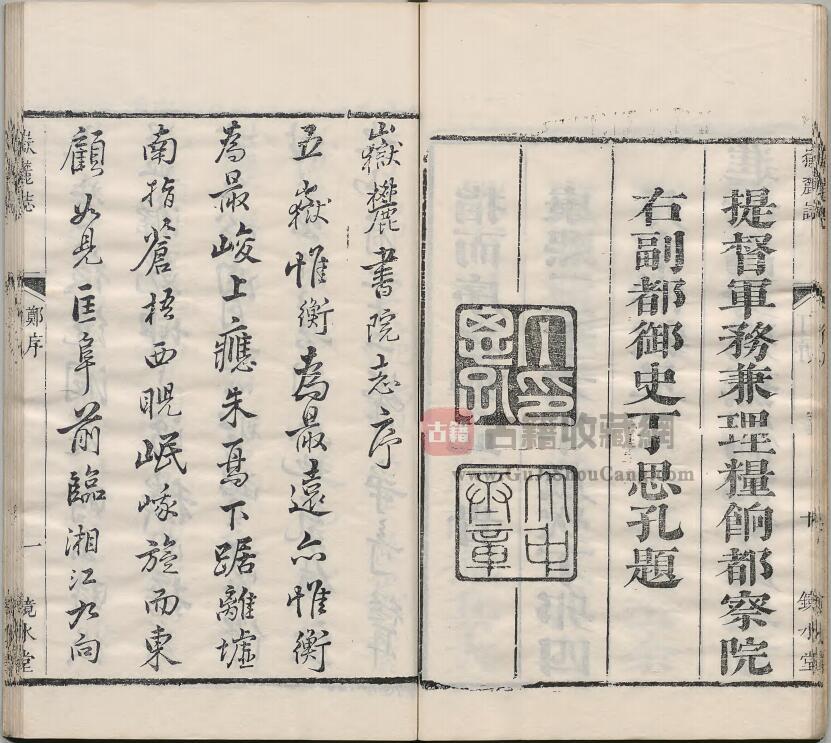 嶽麓志
鏡水堂
提督軍務兼理糧餉都察院
右副都御史丁思孔題
大中丞章
嶽麓書院志序
五嶽惟衡為最遠亦惟衡
為最峻上應朱鳥下踞離墟
南指蒼梧西睨岷峨旋而東
顧如見匡阜前臨湘江九向
嶽麓志
鄭序
一
鏡水堂
古籍
古籍收藏網